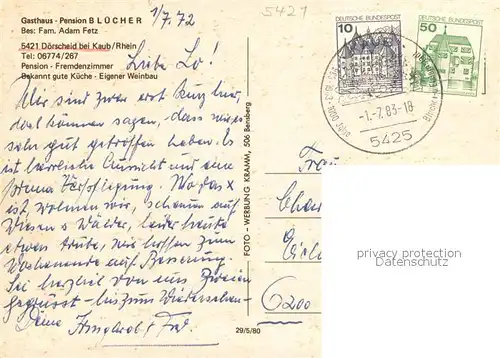 Gasthaus - Pension BLÜCHER
Bes: Fam. Adam Fetz
1/7.72
5421 Dörscheid bei Kaub/Rhein
Tel: 06774/267
Pension · Fremdenzimmer
Bekannt gute Küche · Eigener Weinbau
5421
Liebe Lo!
Wir sind zwar erst kurz hier,
doch können sagen, dass wir es
sehr gut getroffen haben. Es
ist herrliche Aussicht und eine
prima Verpflegung. Wo das x
ist, wohnen wir, schauen auf
Wiesen u Wälder, leider heute
etwas trübe, wir hoffen zum
Wochenende auf Besserung.
Sei herzlich von uns Zweien
gegrüsst - bis zum Wiedersehen -
Deine
FOTO - WERBUNG KRAMM, 506 Bensberg
29/5/80
10 DEUTSCHE BUNDESPOST
DEUTSCHE BUNDESPOST 50
-1.-7.83-18
5425
Frau
6200
privacy protection
Datenschutz